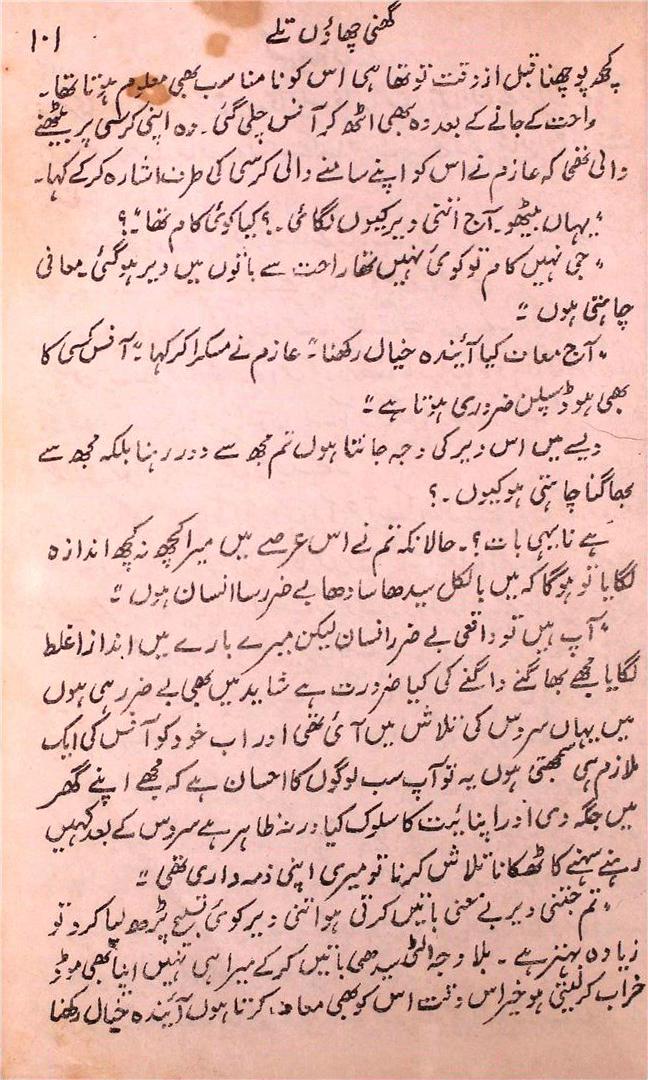 گھنی چھاؤں تلے
۱۰۱
کچھ پوچھنا قبل از وقت تو تھا ہی اس کو نامناسب بھی معلوم ہوتا تھا۔
راحت کے جانے کے بعد وہ بھی اٹھ کر آفس چلی گئی۔ وہ اپنی کرسی پر بیٹھنے
والی تھی کہ عازم نے اس کو اپنے سامنے والی کرسی کی طرف اشارہ کر کے کہا۔
"یہاں بیٹھو۔ آج اتنی دیر کیوں لگائی۔؟ کیا کوئی کام تھا"۔؟
"جی نہیں کام تو کوئی نہیں تھا راحت سے باتوں میں دیر ہو گئی۔ معافی
چاہتی ہوں"۔
"آج معاف کیا آئیندہ خیال رکھنا"۔ عازم نے مسکرا کر کہا۔ "آفس کسی کا
بھی ہو ڈسپلن ضروری ہوتا ہے"۔
ویسے میں اس دیر کی وجہ جانتا ہوں تم مجھ سے دور رہنا بلکہ مجھ سے
بھاگنا چاہتی ہو کیوں۔؟
ہے نا یہی بات؟۔ حالانکہ تم نے اس عرصے میں میرا کچھ نہ کچھ اندازہ
لگایا تو ہوگا کہ میں بالکل سیدھا سادھا بے ضرر سا انسان ہوں"۔
"آپ ہیں تو واقعی بے ضرر انسان لیکن میرے بارے میں اندازا غلط
لگایا مجھے بھاگنے واگنے کی کیا ضرورت ہے شاید میں بھی بے ضرر ہی ہوں
میں یہاں سروس کی تلاش میں آئی تھی اور اب خود کو آفس کی ایک
ملازم ہی سمجھتی ہوں یہ تو آپ سب لوگوں کا احسان ہے کہ مجھے اپنے گھر
میں جگہ دی اور اپنائیت کا سلوک کیا ورنہ ظاہر ہے سروس کے بعد کہیں
رہنے سہنے کا ٹھکانا تلاش کرنا تو میری اپنی ذمہ داری تھی"۔
"تم جتنی دیر بے معنی باتیں کرتی ہو اتنی دیر کوئی تسبیح پڑھ لیا کرو تو
زیادہ بہتر ہے۔ بلا وجہ الٹی سیدھی باتیں کر کے میرا ہی نہیں اپنا بھی موڈ
خراب کر لیتی ہو خیر اس وقت اس کو بھی معاف کرتا ہوں آئیندہ خیال رکھنا